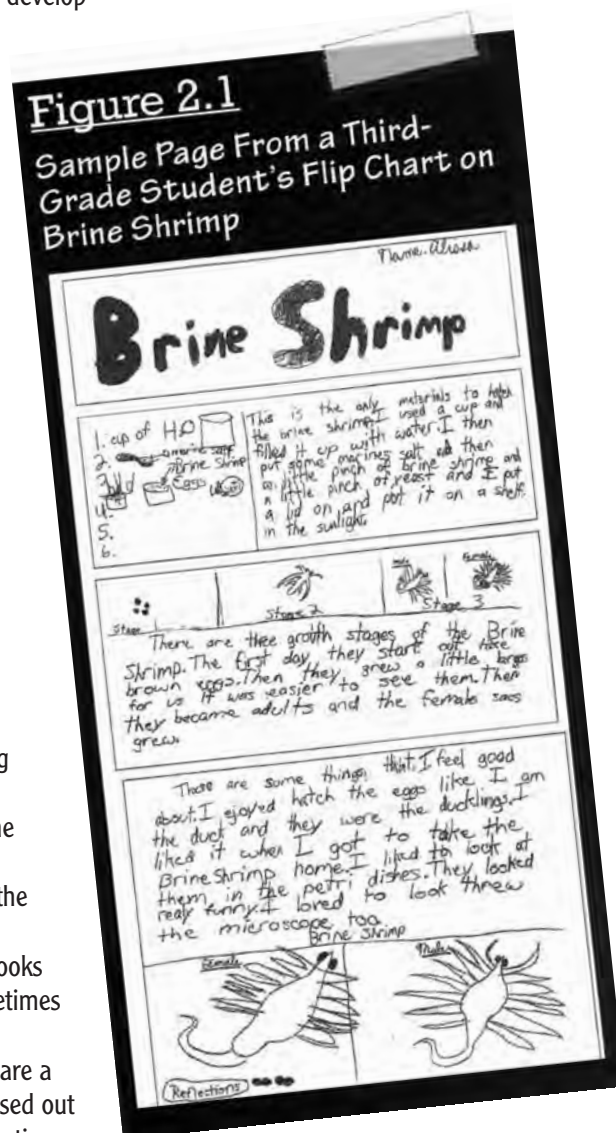 develop
Figure 2.1
Sample Page From a Third-
Grade Student's Flip Chart on
Brine Shrimp
Name. Alissa
Brine Shrimp
1. cup of H2O
2. marine salt
3. Brine Shrimp
Eggs
4.
5.
6.
This is the only materials to hatch
the brine shrimp. I used a cup and
filled it up with water. I then
put some marines salt and then
a little pinch of brine shrimp and
a little pinch of yeast and I put
a lid on and pot it on a shelf.
in the sunlight.
Stage 1
Stage 2
Male
Female
Stage 3
There are thee groth stages of the Brine
Shrimp. The first day, they start out like
brown eggs. Then they grew a little
for us It was easier to see them. Then
they became adults and the female sacs
grew.
There are some things that I feel good
about. I ejoyed hatch the eggs like I am
the duck and they were the ducklings. I
liked it when I got to take the
Brine Shrimp home. I liked to look at
them in the petri dishes. They looked
realy funny. I loved to look threw
the microscope too.
Brine Shrimp
Female
Male
Reflections
g
ne
the
ooks
etimes
are a
sed out